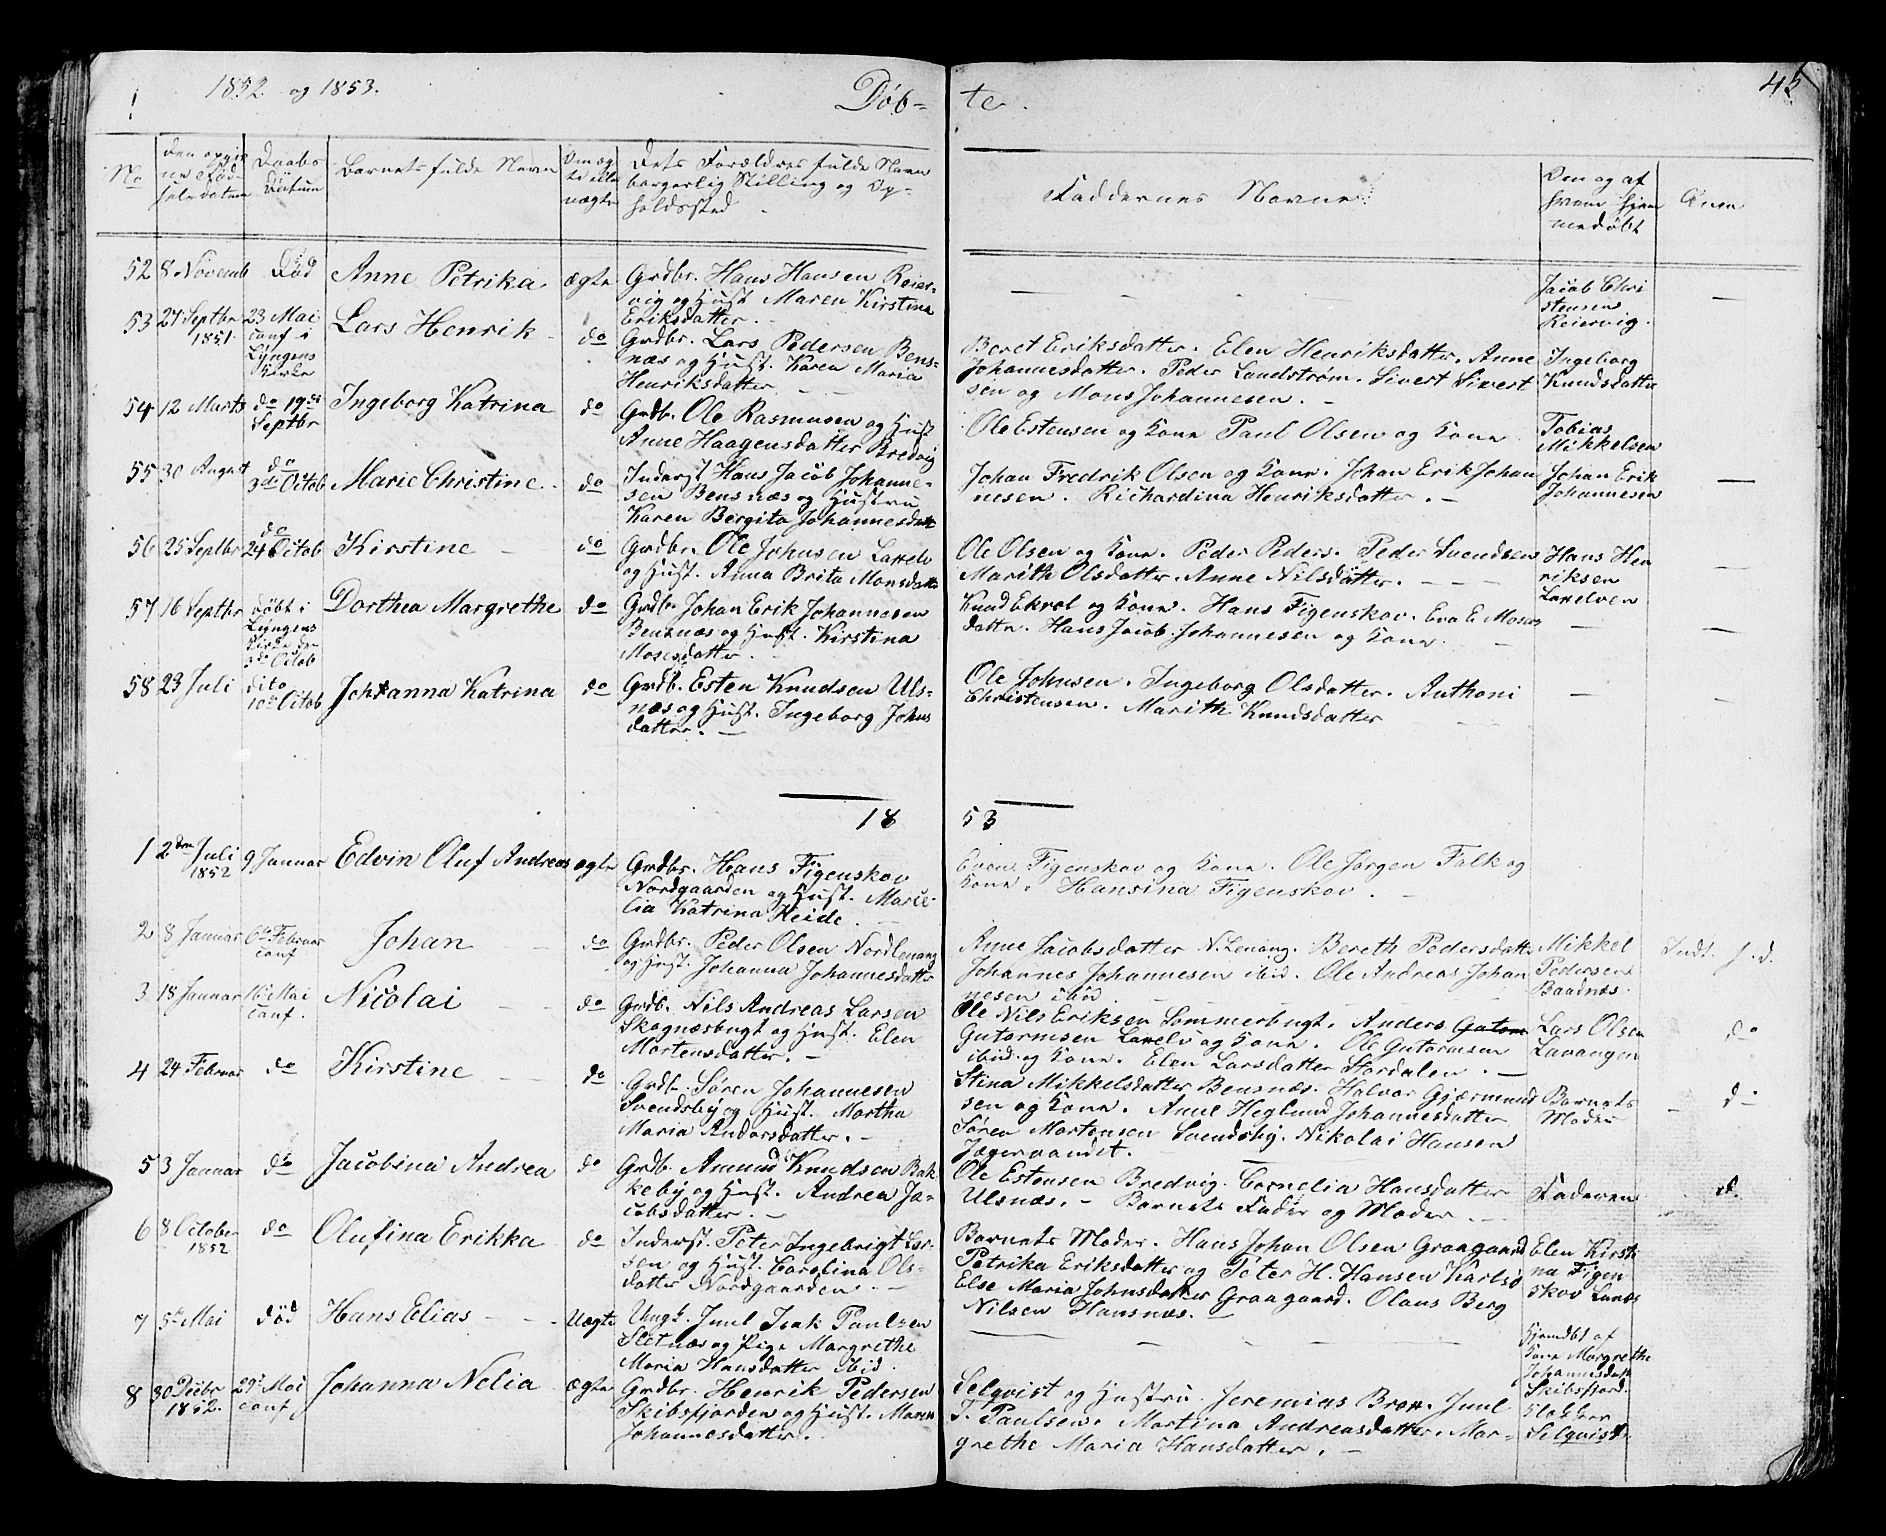 1852 og 1853.
Døb=
te.
45
No
Daabs Datum
Barnets fulde Navn
Om ægte eller uægte
Dets Forældres fulde Navn borgerlig Stilling og Opholdssted
Faddernes Navne
Om og af hvem hjemmedøbt
Anm
52 8 Novemb Død Anne Petrika. ægte Grdbr. Hans Hansen Reiervig og Hust Maren Kirstina Eriksdatter. — Jacob Christensen Reiervig. —
53 27 Septbr 1851. 23 Mai conf i Lyngens Kirke Lars Henrik do Grdbr. Lars Pedersen Bensnæs og Hust. Karen Maria Henriksdatter
Beret Eriksdatter. Elen Henriksdatter. Anne Johannesdatter. Peder Lundstrøm. Sivert Sivertsen og Mons Johannesen. — Ingeborg Knudsdatter
54 12 Marts do 19de Septbr Ingeborg Katrina do Grdb. Ole Rasmusen og Hust Anne Haagensdatter Bredvig
Ole Estensen og Kone Paul Olsen og Kone Tobias Mikkelsen
55 30 August do 3de Octob Marie Christine. do Inderst Hans Jacob Johannesen Bensnæs og Hustru Karen Bergita Johannesdatt
Johan Fredrik Olsen og Kone. Johan Erik Johannesen. Richardina Henriksdatter. — Johan Erik Johannesen —
56 25 Septbr do 24 Octob Kirstine do Grdbr. Ole Johnsen Lakselv og Hust. Anna Brita Monsdatter
Ole Olsen og Kone. Peder Peders. Peder Svendsen Marith Olsdatter. Anne Nilsdatter. — Hans Henriksen Lakselven —
57 16 Septbr døbt i Lyngens Kirke den 3de Octob Dorthea Margrethe do Grdbr. Johan Erik Johannesen Bensnæs og Hust. Kirstina Mosesdatter. —
Knud Ekrol og Kone. Hans Figenskov. Eva E. Mosesdatter. Hans Jacob Johannesen og Kone. — —
58 23 Juli dito 10de Octob Johanna Katrina do Grdb. Esten Knudsen Ulsnæs og Hust. Ingeborg Johnsdatter. —
Ole Johnsen. Ingeborg Olsdatter. Anthoni Christensen. Marith Knudsdatter —
18 53
1 2den Juli 1852 9 Januar Edvin Oluf Andreas ægte Grdbr. Hans Figenskov Nordgaarden og Hust. Marcelia Katrina Heide.
Even Figenskov og Kone. Ole Jørgen Falk og Kone. Hansina Figenskov. —
2 8 Januar 6te Februar conf Johan do Grdbr. Peder Olsen Nordlenang og Hust. Johanna Johannesdatter
Anne Jacobsdatter N. Lenang. Bereth Pedersdatter Johannes Johannesen ibid. Ole Andreas Johannesen ibid Mikkel Pedersen Baadnæs.
3 18 Januar 16 Mai conf. Nicolai do Grdb. Nils Andreas Larsen Skognæsbugt og Hust. Elen Mortensdatter. —
Ole Nils Eriksen Sommerbugt. Anders Gutormsen Lakselv og Kone. Ole Gutormsen ibid. og Kone. Elen Larsdatter Stordalen. — Lars Olsen Lavangen do
4 24 Februar do Kirstine do Grdb. Søren Johannesen Svendsby og Hust. Martha Maria Andersdatter. —
Stina Mikkelsdatter Bensnæs. Halvor Gjærmundsen og Kone. Anne Heglund Johannesdatter Søren Mortensen Svendsby. Nikolai Hansen Jægervandet. — Barnets Moder do
5 3 Januar do Jacobina Andrea do Grdb. Amund Knudsen Bakkeby og Hust. Andrea Jacobsdatter. —
Ole Estensen Bredvig. Cornelia Hansdatter Ulsnæs. — Barnets Fader og Moder. — Faderen d.
6 8 October 1852 do Olufina Erikka do Inderst. Peter Ingebrigt Larsen og Hust. Carolina Olsdatter Nordgaarden. —
Barnets Moder. Hans Johan Olsen Graagaard Petrika Eriksdatter og Peter H. Hansen Karlsø Else Maria Johnsdatter Graagaard. Olaus Berg Nilsen Hansnæs. — Elen Kirstina Figenskov
7 5te Mai død Hans Elias Uægte Ungk. Juul Isak Paulsen Sletnæs og Pige Margrethe Maria Hansdatter ibid. — Hjemdbt af Kone Margrethe Johannesdatt Skibsfjord.
8 30 Decbr 1852. 29de Mai conf. Johanna Nelia ægte Grdbr. Henrik Pedersen Skibsfjorden og Hust. Maren Johannesdatter.
Selqvist og Hustru. Jeremias Brox. Juul I. Paulsen. Martina Andreasdatter. Margrethe Maria Hansdatter. — Klokker Selqvist.